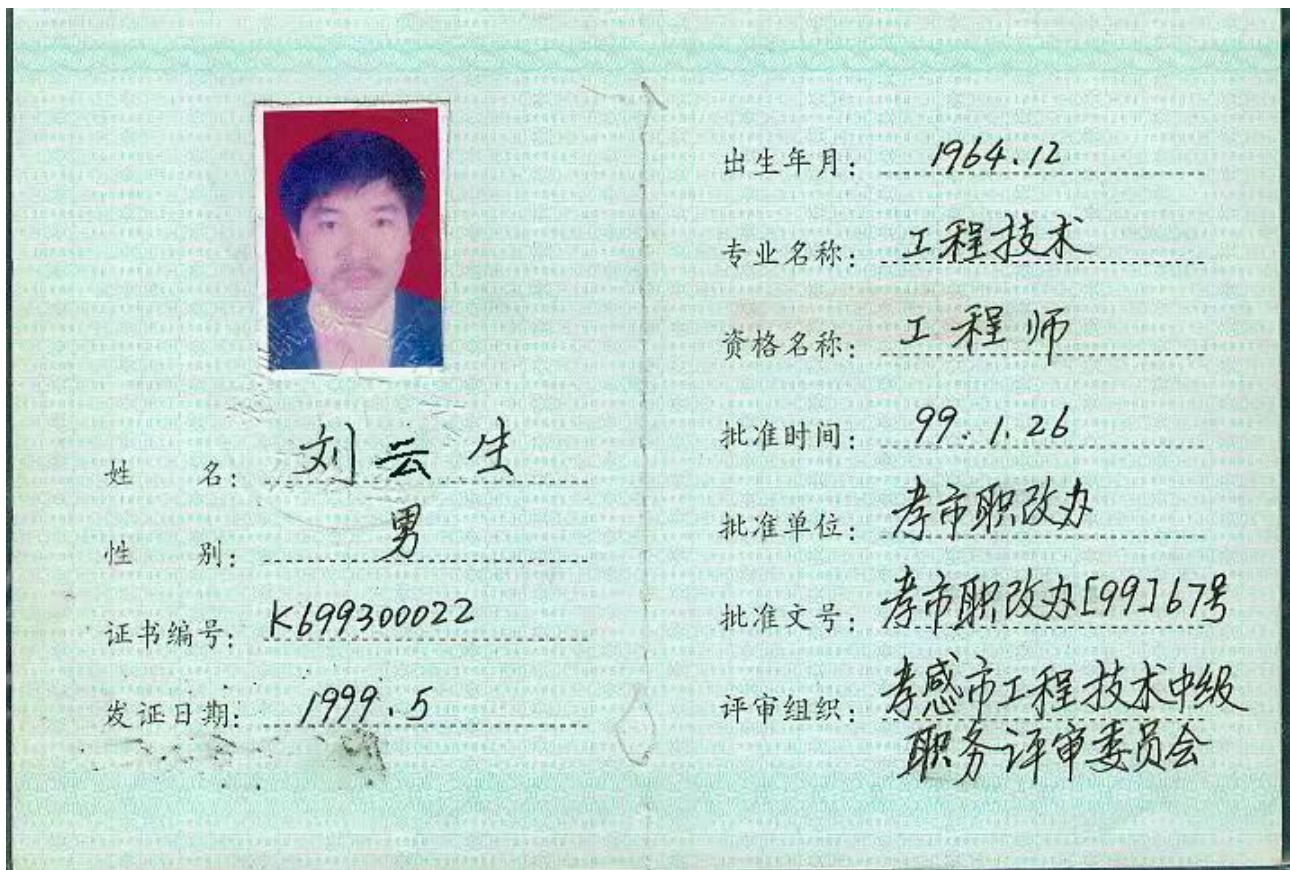 姓 名: 刘云生
性 别: 男
证书编号: K699300022
发证日期: 1999.5
出生年月: 1964.12
专业名称: 工程技术
资格名称: 工程师
批准时间: 99.1.26
批准单位: 孝市职改办
批准文号: 孝市职改办[99]67号
评审组织: 孝感市工程技术中级
职务评审委员会